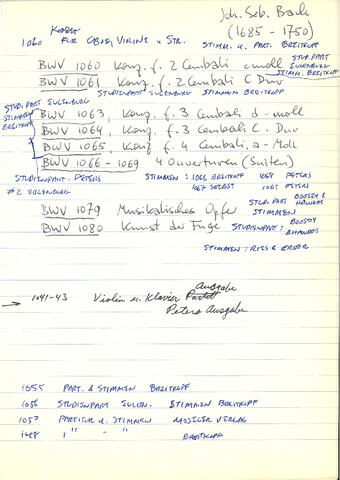 Joh. Seb. Bach
(1685 - 1750)
Konzert
1060 FÜR OBOE, VIOLINE u. STR. STIMM. u. PART. BREITKOPF
BWV 1060 Konz. f. 2 Cembali c moll STUD. PART EULENBURG
BWV 1061 Konz. f. 2 Cembali C Dur STIMM. BREITKOPF
STUDIENPART EULENBURG STIMMEN BREITKOPF
STUD. PART EULENBURG
STIMMEN BREITKOPF
BWV 1063, Konz. f. 3 Cembali d-moll
BWV 1064, Konz. f. 3 Cembali C Dur
BWV 1065, Konz. f. 4 Cembali, a-Moll
BWV 1066-1069 4 Ouverturen (Suiten)
STUDIENPART. PETERS STIMMEN: 1066 BREITKOPF 1068 PETERS
#2 EULENBURG 1067 SELBST 1069 PETERS
BWV 1079 Musikalisches Opfer STUD. PART BOOSEY & HAWKES
STIMMEN
BWV 1080 Kunst der Fuge STUDIENPART: BOOSEY & HAWKES
STIMMEN: RIES & ERLER
→ 1041-43 Violin u. Klavier Ausgabe
Peters Ausgabe
1055 PART. & STIMMEN BREITKOPF
1056 STUDIENPART EULEN. STIMMEN BREITKOPF
1057 PARTITUR u. STIMMEN MOSELER VERLAG
1058 1 " " " BREITKOPF